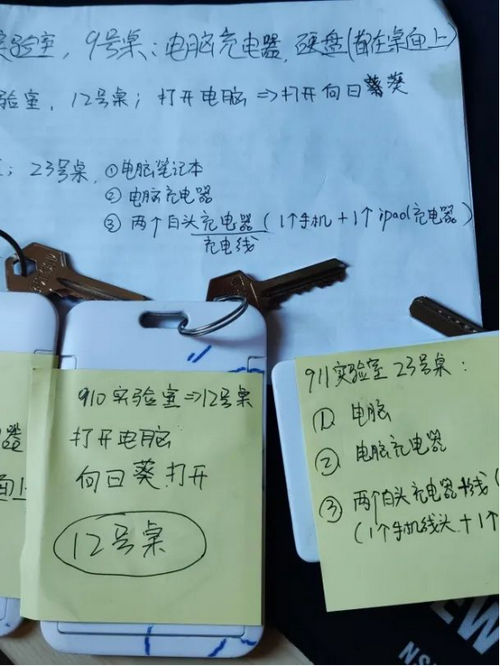 实验室，9号桌：电脑充电器，硬盘(都在桌面上)
验室，12号桌；打开电脑⇒打开向日葵
；23号桌，①电脑笔记本
②电脑充电器
③两个白头充电器(1个手机+1个ipad充电器)
充电线
910实验室⇒12号桌
打开电脑
向日葵打开
12号桌
911实验室23号桌：
①电脑
②电脑充电器
③两个白头充电器+线(
(1个手机线头+1个
器
面上
EW
NS